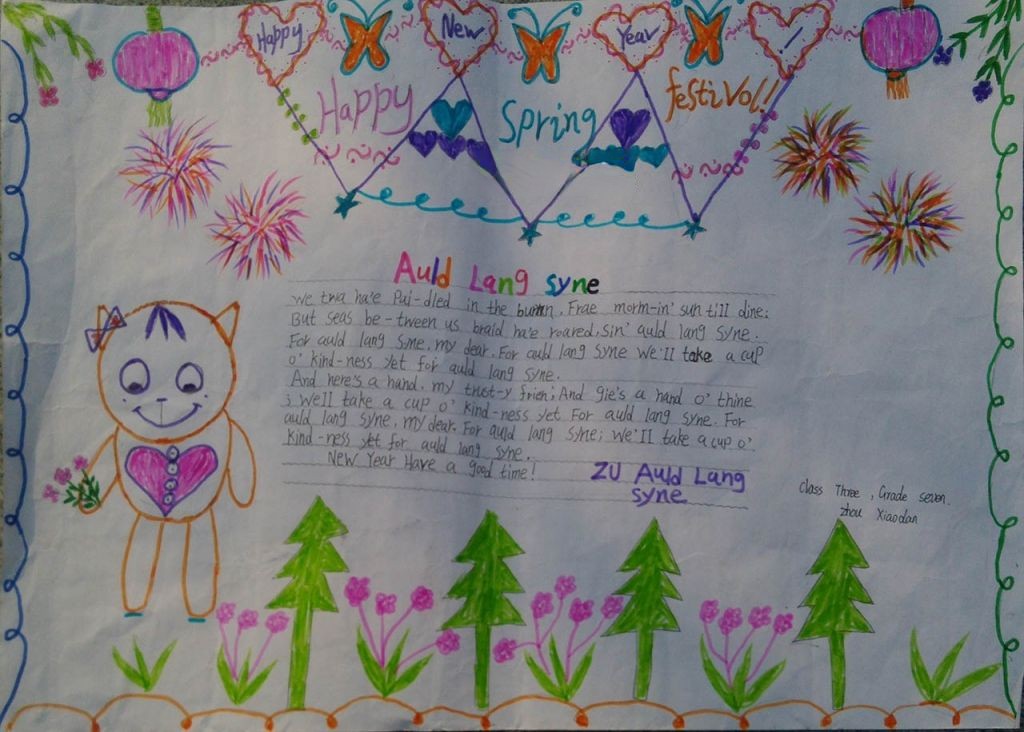 Happy New Year !
Happy Spring festival!
Auld Lang syne
we twa ha'e Pai-dled in the burn, Frae morm-in' sun till dine;
But seas be-tween us braid ha'e roared, sin' auld lang syne.
For auld lang syne, my dear. For auld lang syne We'll take a cup
o' kind-ness yet for auld lang syne.
And here's a hand, my trust-y frien; And gie's a hand o' thine
; We'll take a cup o' kind-ness yet For auld lang syne. For
auld lang syne, my dear. For auld lang syne; We'll take a cup o'
kind-ness yet for auld lang syne.
New Year Have a good time!
ZU Auld Lang
syne
Class Three, Grade seven.
zhou Xiaodan